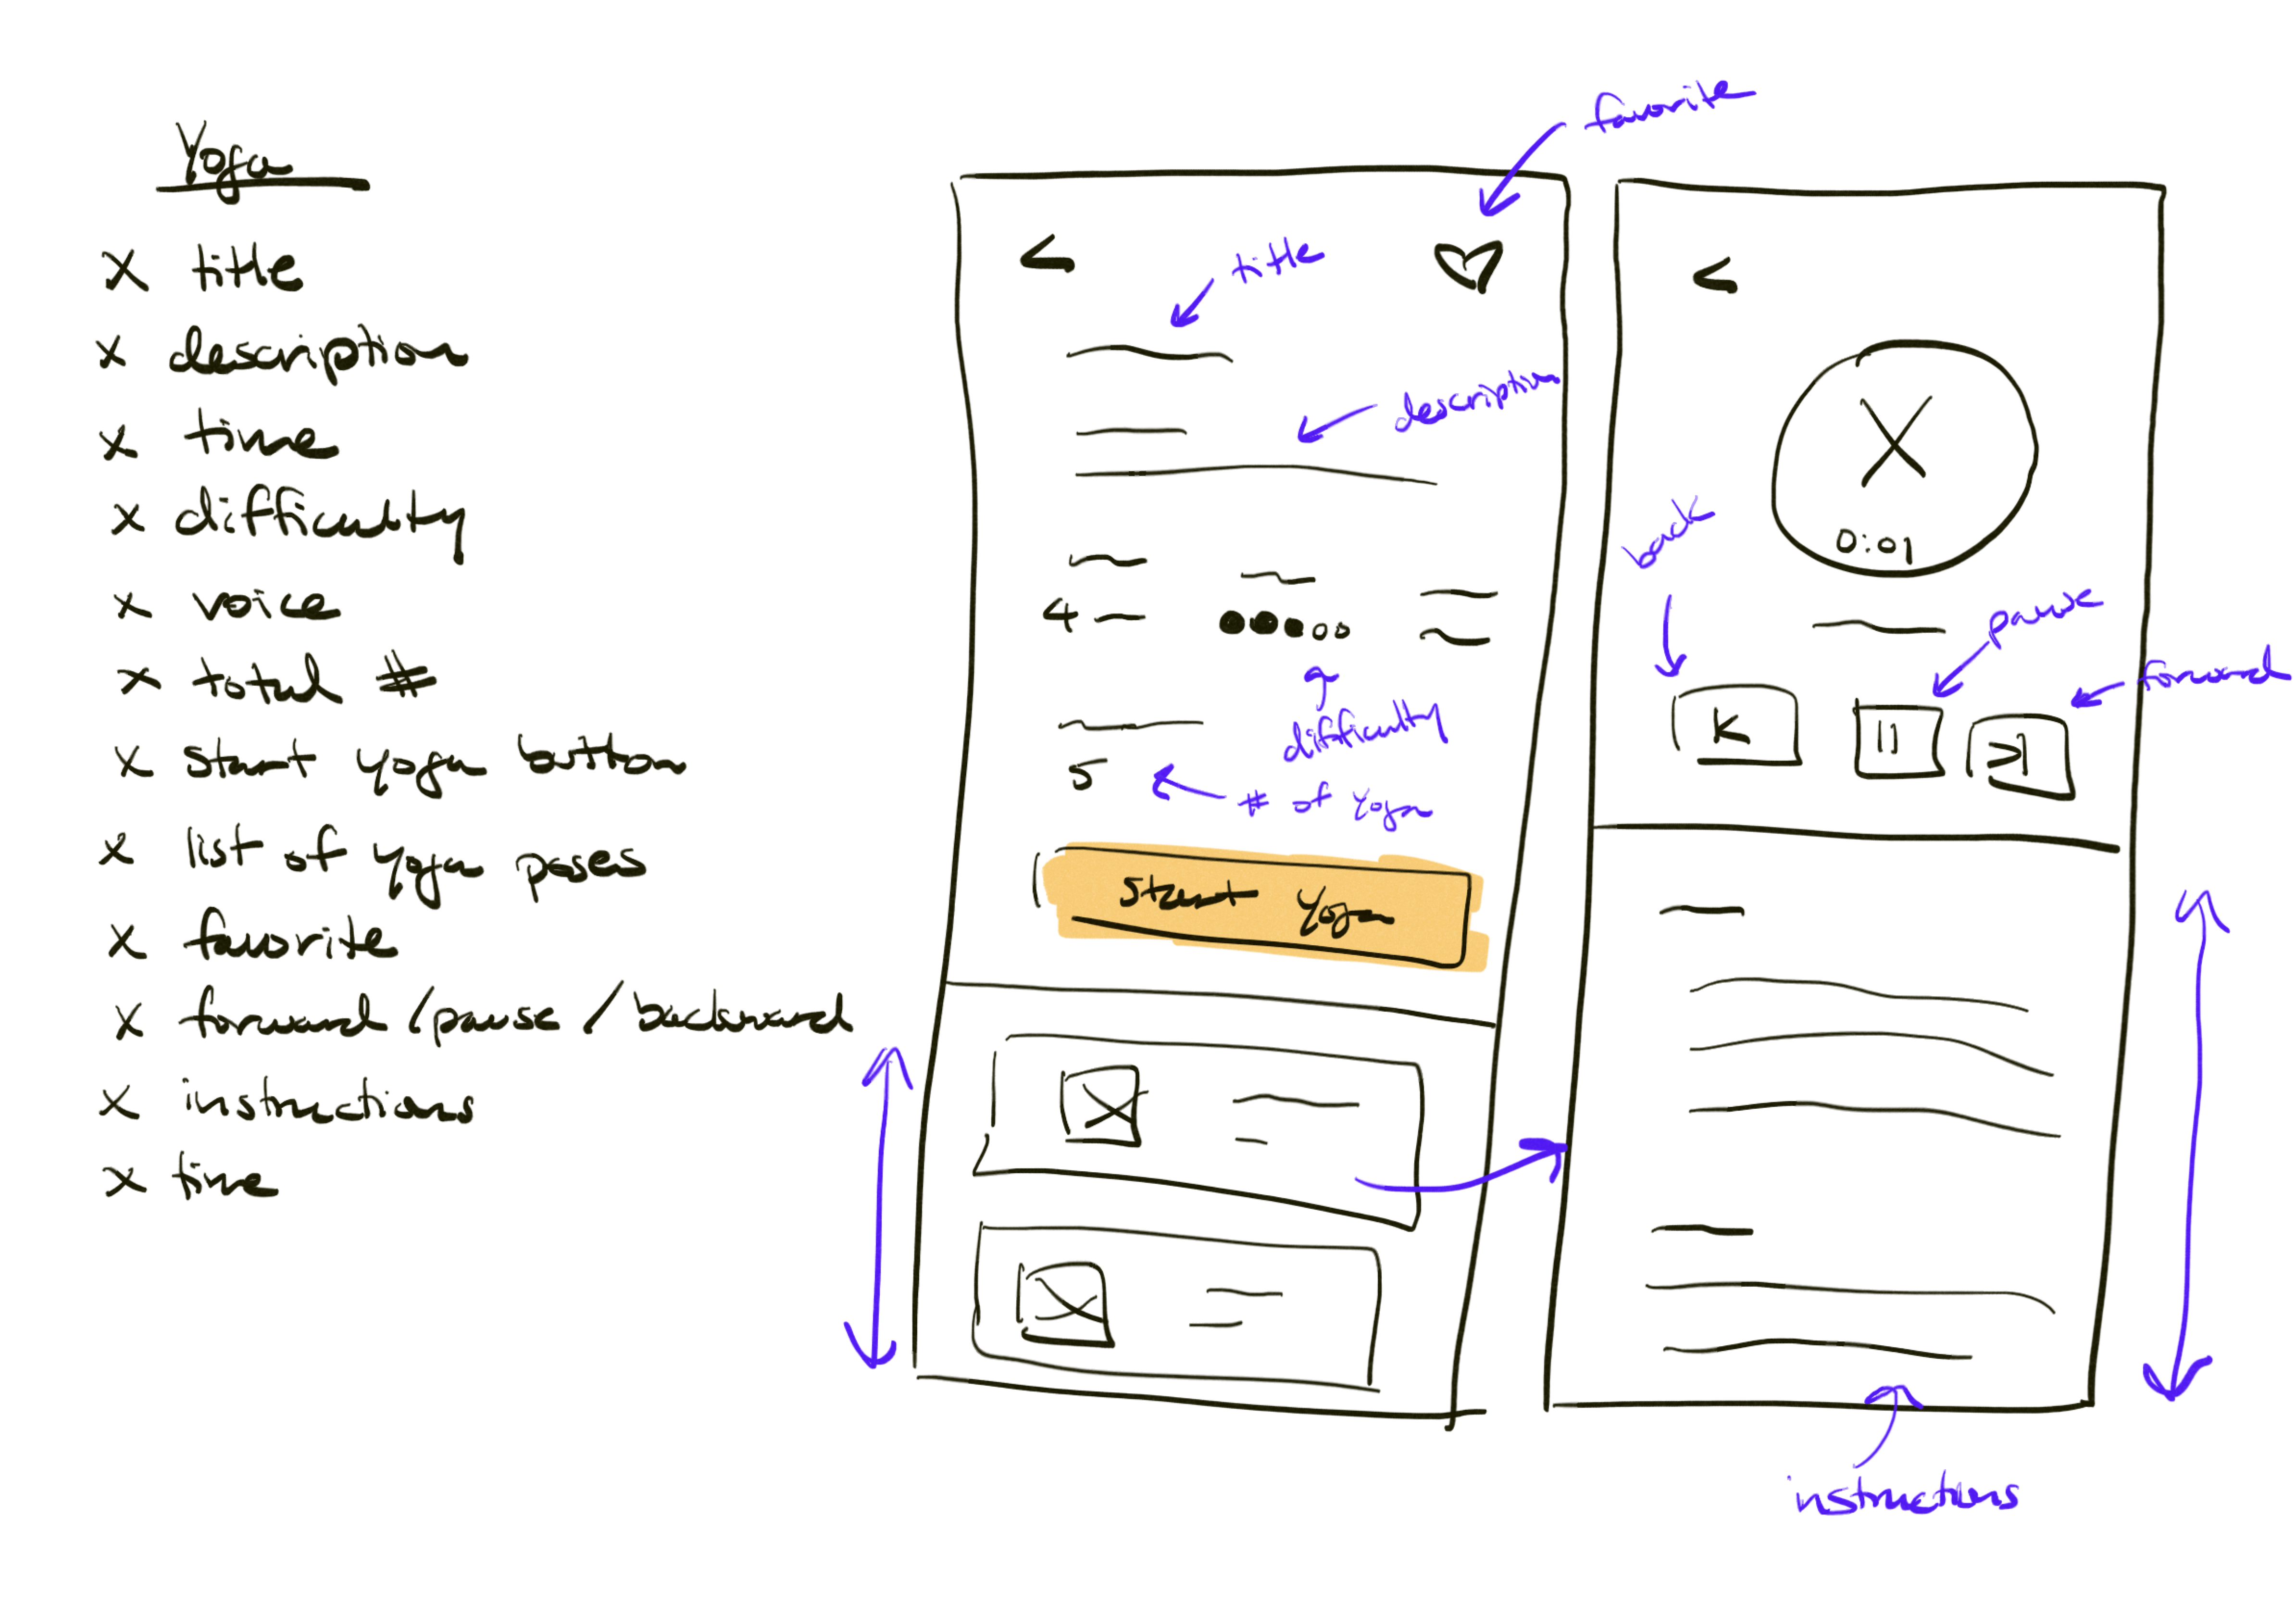 Yoga
x title
x description
x time
x difficulty
x voice
x total #
x start yoga button
x list of yoga poses
x favorite
x forward / pause / backward
x instructions
x time
favorite
<
title
description
4
difficulty
5
# of yoga
Start Yoga
<
0:01
back
pause
forward
K
||
>|
instructions